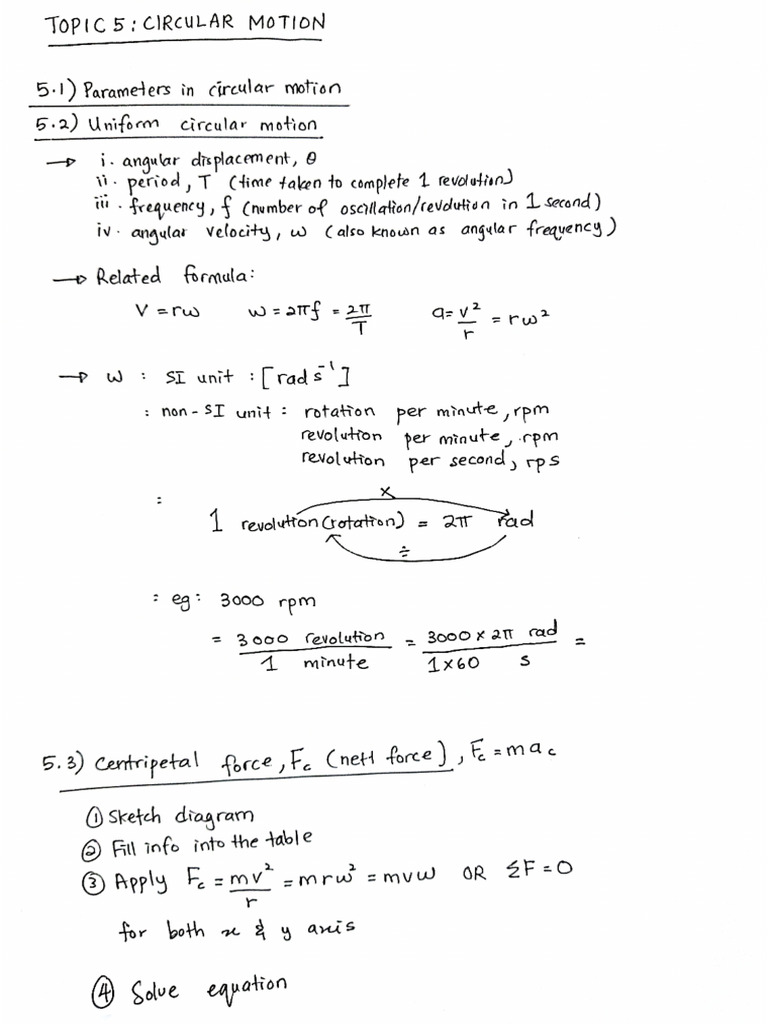 TOPIC 5: CIRCULAR MOTION
5.1) Parameters in circular motion
5.2) Uniform circular motion
→ i. angular displacement, θ
ii. period, T (time taken to complete 1 revolution)
iii. frequency, f (number of oscillation/revolution in 1 second)
iv. angular velocity, ω (also known as angular frequency)
→ Related formula:
V = rω ω = 2πf = 2π/T a = v²/r = rω²
→ ω : SI unit : [rad s⁻¹]
: non-SI unit : rotation per minute, rpm
revolution per minute, rpm
revolution per second, rps
: ×
1 revolution (rotation) = 2π rad
÷
: eg: 3000 rpm
= 3000 revolution / 1 minute = 3000 × 2π rad / 1×60 s =
5.3) Centripetal force, Fc (nett force), Fc = mac
① Sketch diagram
② Fill info into the table
③ Apply Fc = mv²/r = mrω² = mvω OR ΣF = 0
for both x & y axis
④ Solve equation